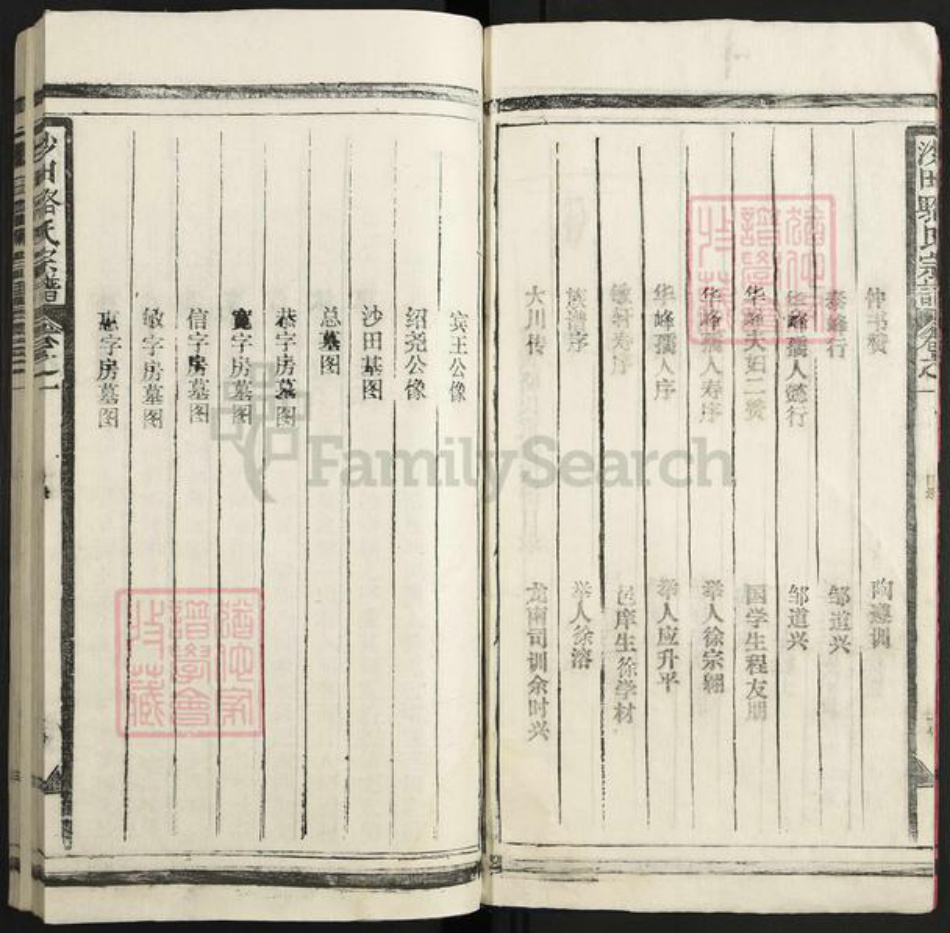 沙田骆氏宗谱
仲韦赞 陶遵训
泰峰行 邹道兴
华峰孺人懿行 邹道兴
华峰夫妇二赞 国学生程友朋
华峰孺人寿序 举人徐宗翱
华峰孺人序 举人应升平
敏轩寿序 邑庠生徐学材
序 举人徐溶
大川传 龙南司训余时兴
宾王公像
绍尧公像
沙田基图
总墓图
恭字房墓图
宽字房墓图
信字房墓图
敏字房墓图
惠字房墓图
沙田骆氏宗谱
FamilySearch